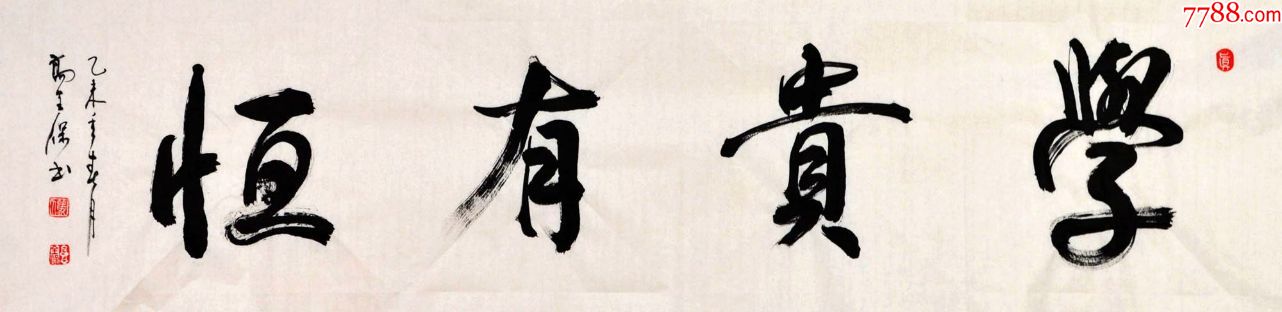 學貴有恒
乙未年春月
生保书
真
7788.com